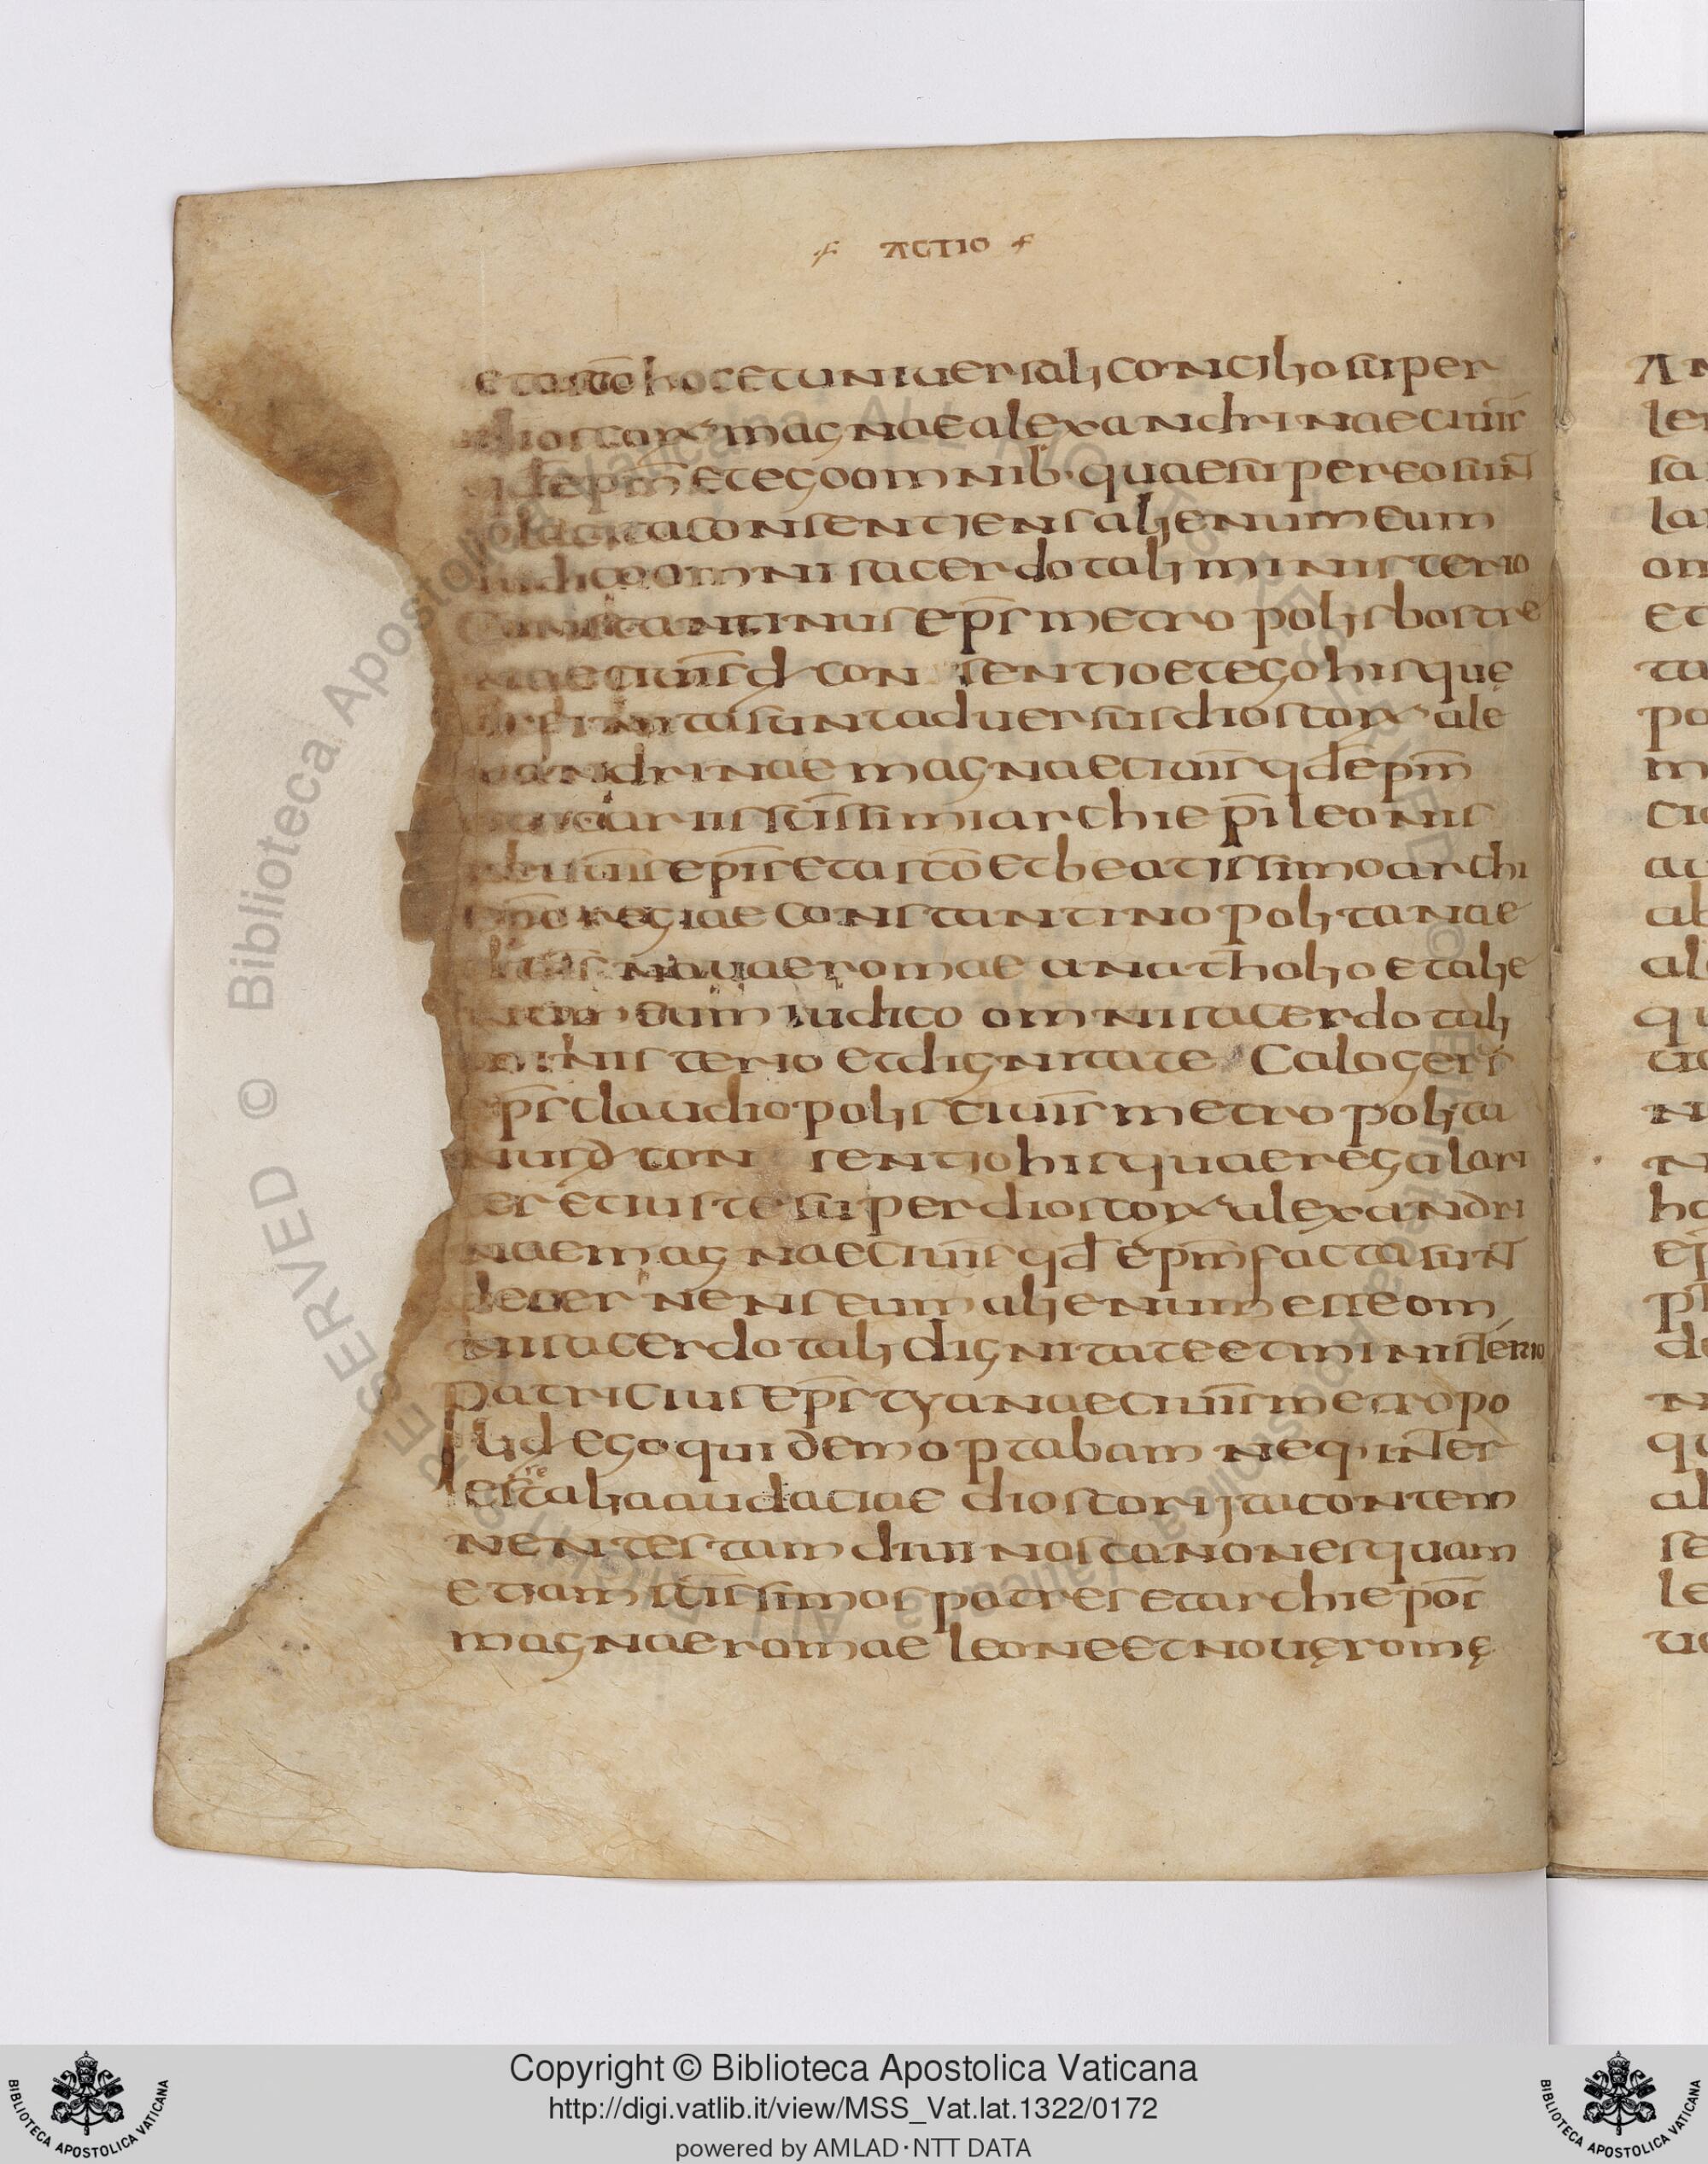 ACTIO
et a sc̄o hoc et universali concilio super
dioscorū magnae alexandrinae civit̄
qd̄ ep̄m et ego omnib· quae super eo sunt
placita consentiens alienum eum
iudico omni sacerdotali ministerio
Constantinus ep̄s metropolis bostre
nae civit̄s d̄x con sentio et ego his quę
definita sunt adversus dioscorū ale
xandrinae magnae civit̄s qd̄ ep̄m
sc̄issimi archiep̄i leonis
ep̄is et a sc̄o et beatissimo archi
ep̄o regiae constantinopolitanae
civit̄s novae romae anatholio et alie
num eum iudico omni sacerdotali
ministerio et dignitate Calogerus
ep̄s claudiopolis civit̄s metropolita
nus d̄x con sentio his quae regulari
ter et iuste super dioscorū alexandri
nae magnae civit̄s qd̄ ep̄m facta sunt
decernens eum alienum esse om
ni sacerdotali dignitate et ministerio
Patricius ep̄s tyanae civit̄s metropo
lis d̄x ego quidem optabam neq· inter
esse talia audaciae dioscorij ta contem
nentes tam divinos canones quam
etiam sc̄issimos patres et archiep̄os
magnae romae leone et novę romę
Copyright © Biblioteca Apostolica Vaticana
http://digi.vatlib.it/view/MSS_Vat.lat.1322/0172
powered by AMLAD·NTT DATA
BIBLIOTECA APOSTOLICA VATICANA
BIBLIOTECA APOSTOLICA VATICANA